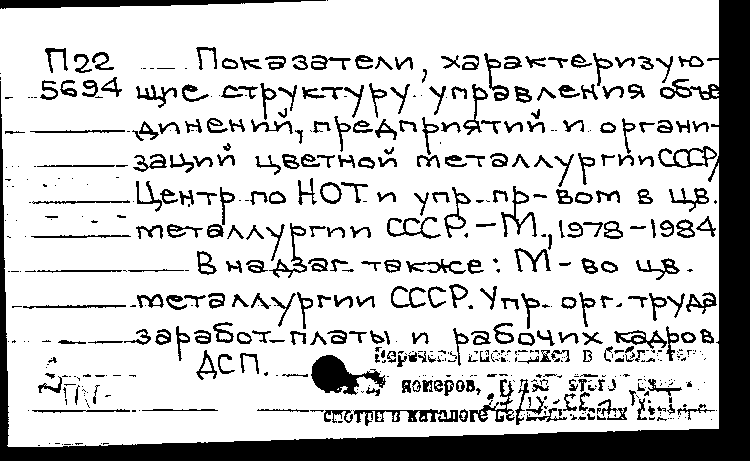 П22 Показатели, характеризую-
5694 щие структуру управления объе
динений, предприятий и органи-
заций цветной металлургии СССР/
Центр по НОТ и упр. пр-вом в цв.
металлургии СССР. – М., 1978-1984
В надзаг. также: М-во цв.
металлургии СССР. Упр. орг. труда
заработ. платы и рабочих кадров.
ДСП. Перечень имеющихся в библиотеке
номеров, этого
смотри в каталоге периодических изданий